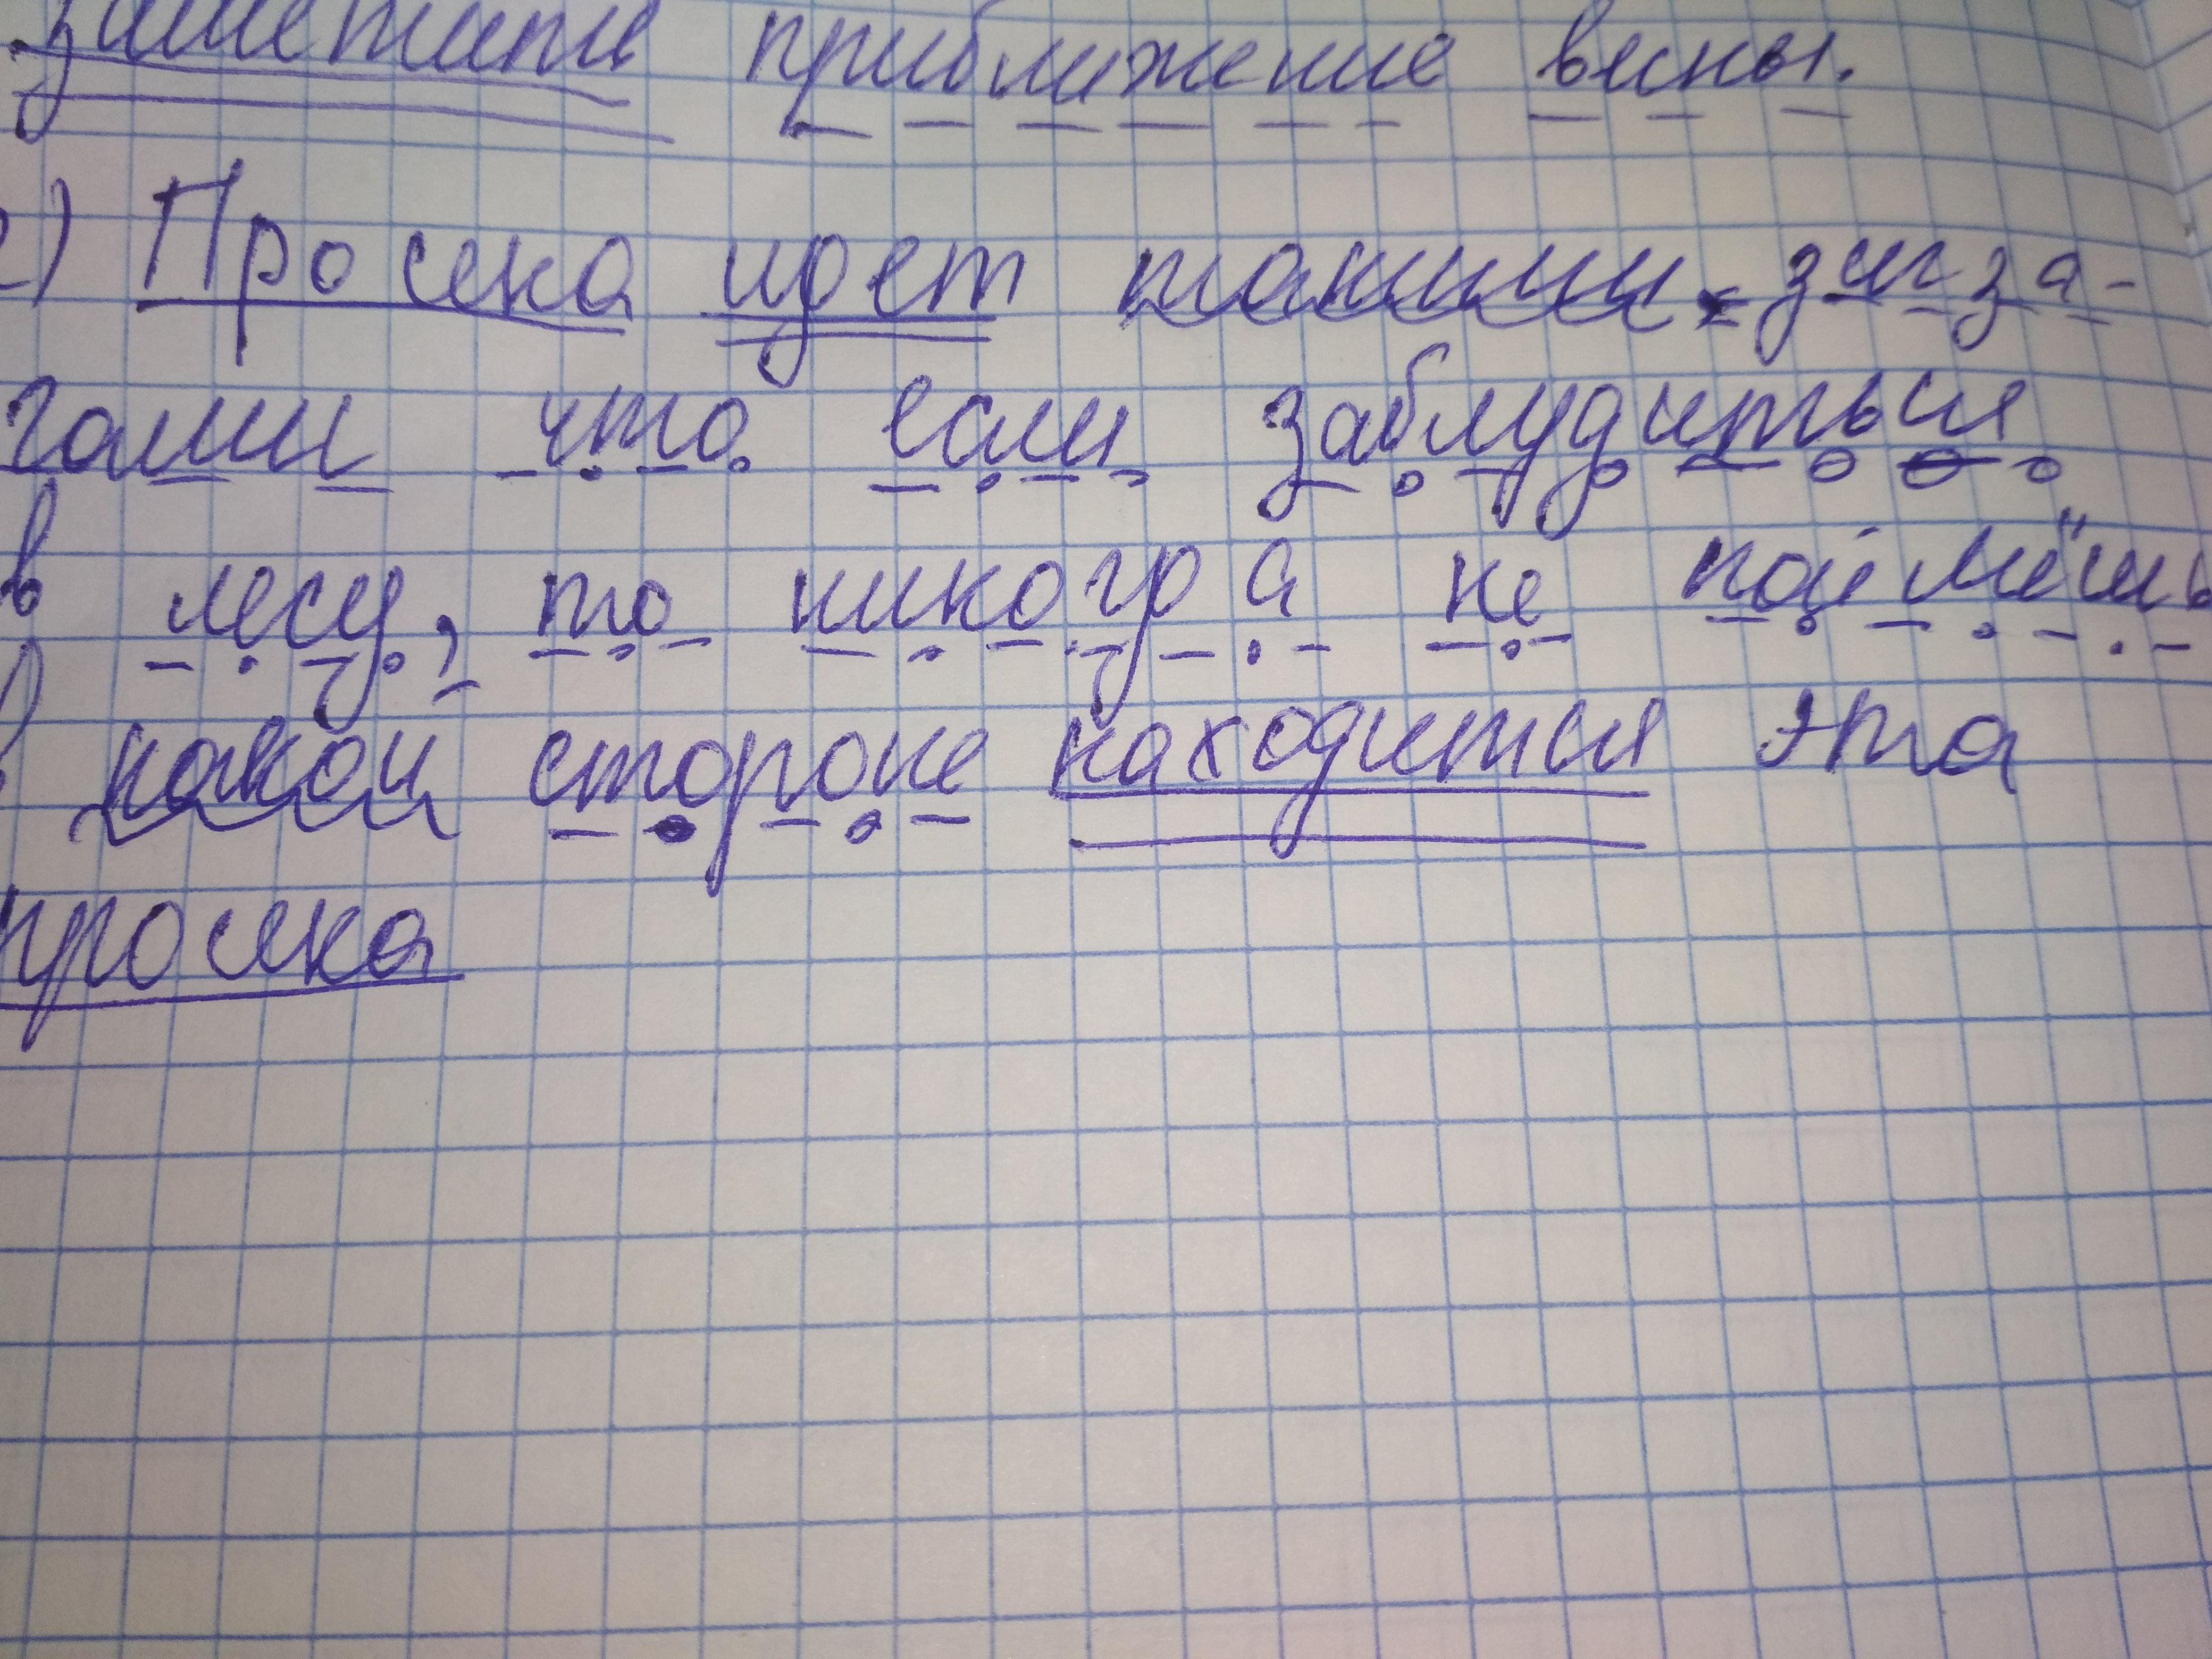 заметить приближение весны.
2) Просека идет такими зигза-
гами что если заблудиться
в лесу, то никогда не поймёшь
в какой стороне находится эта
просека